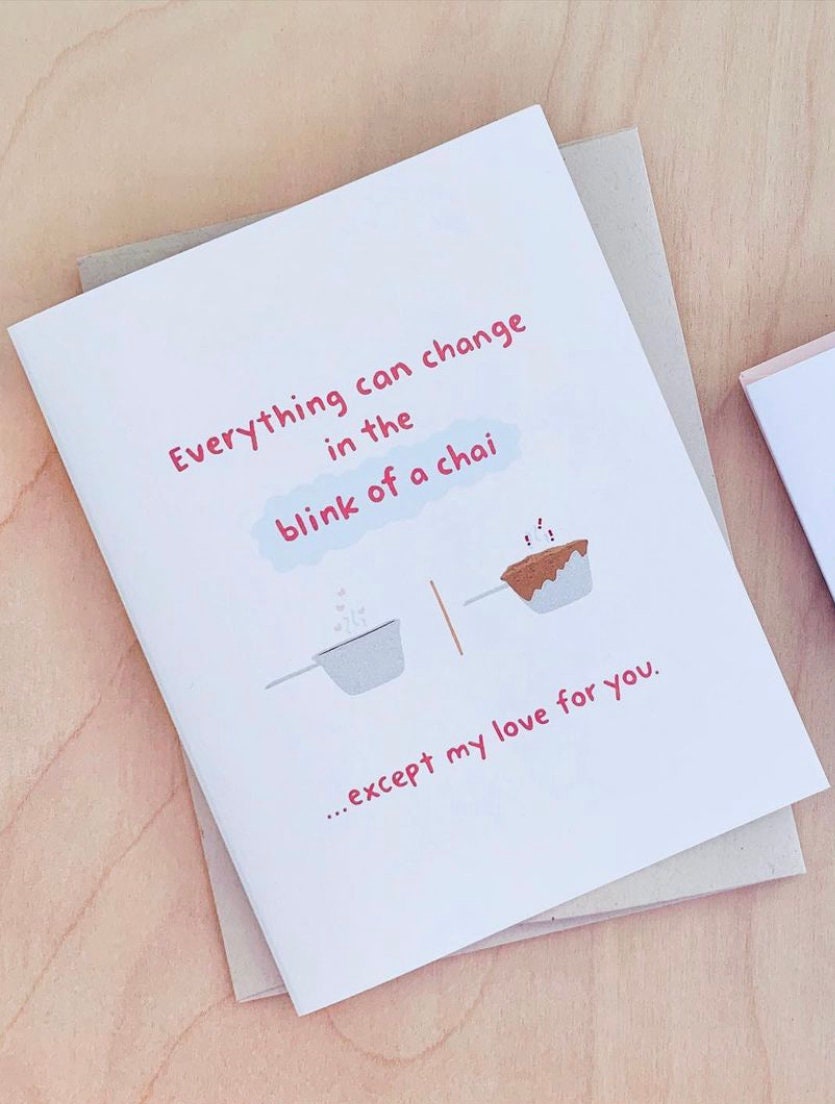 Everything can change
in the
blink of a chai
...except my love for you.